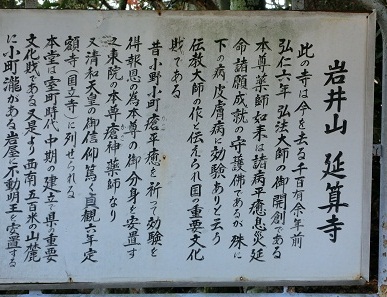 岩井山 延算寺
此の寺は今を去る千百有余年前
弘仁六年 弘法大師の御開創である
本尊薬師如来は諸病平癒息災延
命諸願成就の守護佛であるが殊に
下の病皮膚病に効験ありと云う
伝教大師の作と伝えられ国の重要文化
財である
昔小野小町瘡平癒を祈って効験を
得報恩の為本尊の御分身を安置す
之東院の本尊瘡神薬師なり
又清和天皇の御信仰篤く貞観六年定
額寺(国立寺)に列せらる
本堂は室町時代中期の建立で県の重要
文化財である又是より西南五百米の山麓
に小町滝がある岩屋に不動明王を安置する